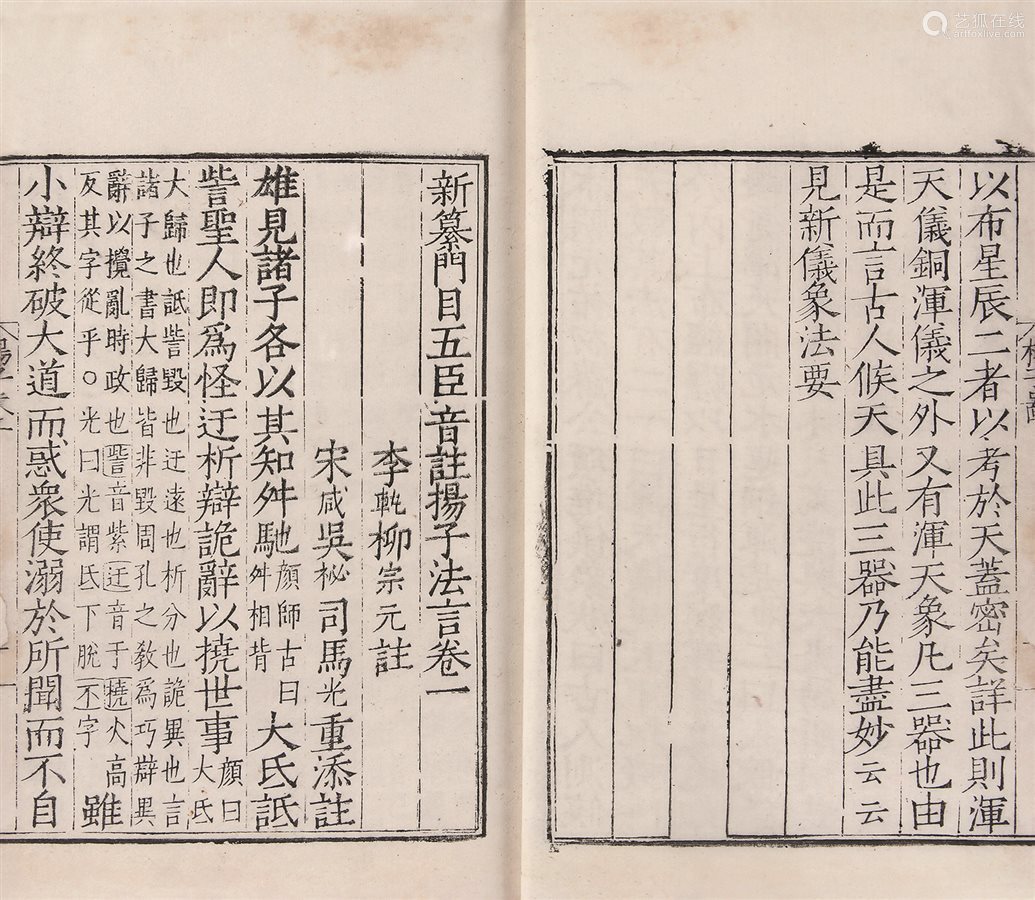 以布星辰二者以考於天蓋密矣詳此則渾
天儀銅渾儀之外又有渾天象凡三器也由
是而言古人候天具此三器乃能盡妙云云
見新儀象法要
新纂門目五臣音註揚子法言卷一
李軌柳宗元註
宋咸吳祕司馬光重添註
雄見諸子各以其知舛馳顏師古曰舛相背大氐詆
訾聖人即爲怪迂析辯詭辭以撓世事顏曰大氐
大歸也詆訾毀也迂遠也析分也詭異也言
諸子之書大歸皆非毀周孔之教爲巧辯異
辭以攪亂時政也訾音紫迂音于撓火高
反其字從手○光曰光謂氐下脫不字雖
小辯終破大道而惑衆使溺於所聞而不自
艺狐在线
artfoxlive.com